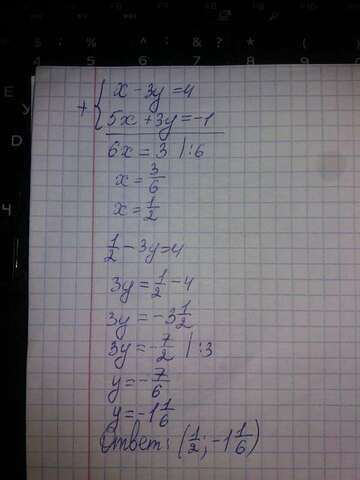 + { x - 3y = 4
5x + 3y = -1
6x = 3 | :6
x = 3/6
x = 1/2
1/2 - 3y = 4
3y = 1/2 - 4
3y = -3 1/2
3y = -7/2 | :3
y = -7/6
y = -1 1/6
Ответ: (1/2; -1 1/6)